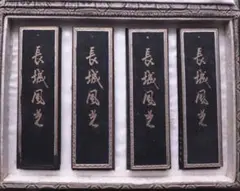 長城風光
長城風光
長城風光
長城風光